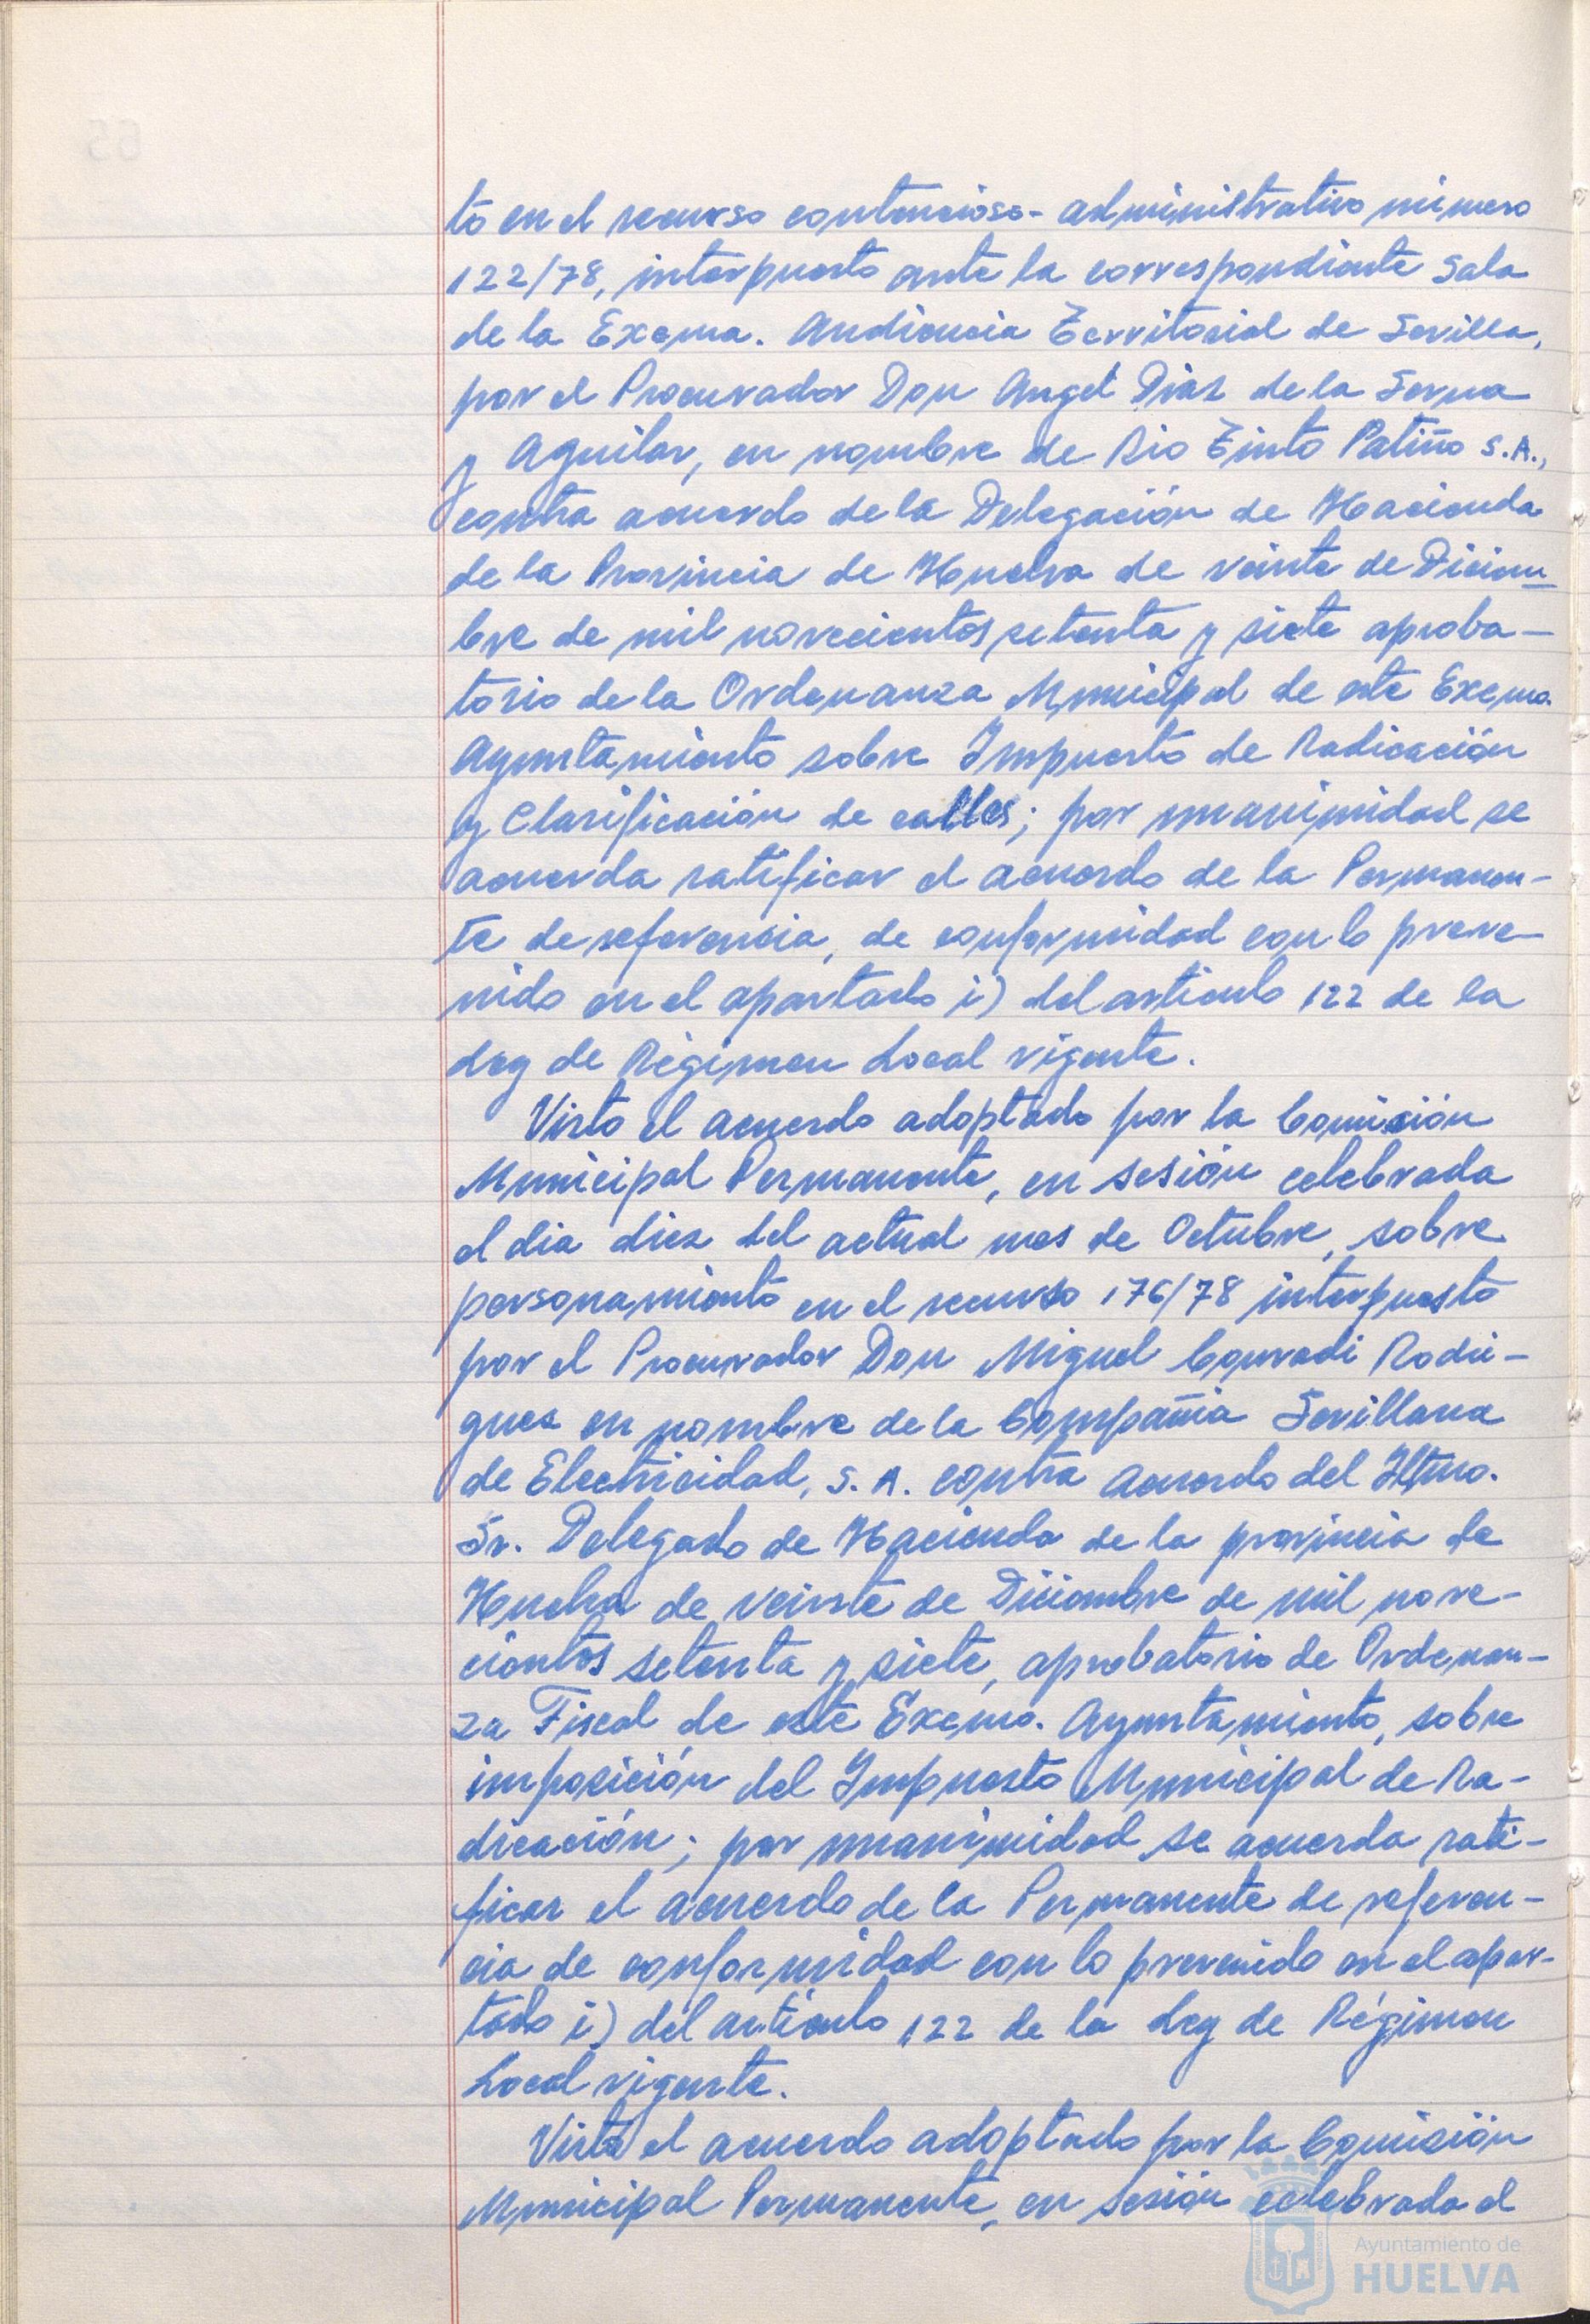 to en el recurso contencioso-administrativo número
122/78, interpuesto ante la correspondiente Sala
de la Excma. Audiencia Territorial de Sevilla,
por el Procurador Don Angel Diaz de la Serna
y Aguilar, en nombre de Rio Tinto Patiño S.A.,
contra acuerdo de la Delegación de Hacienda
de la Provincia de Huelva de veinte de Diciem
bre de mil novecientos setenta y siete aproba-
torio de la Ordenanza Municipal de este Excmo.
Ayuntamiento sobre Impuesto de Radicación
y Clasificación de calles; por unanimidad se
acuerda ratificar el acuerdo de la Permanen-
te de referencia, de conformidad con lo preve-
nido en el apartado i) del articulo 122 de la
Ley de Régimen Local vigente.
Visto el acuerdo adoptado por la Comisión
Municipal Permanente, en sesión celebrada
el dia diez del actual mes de Octubre, sobre
personamiento en el recurso 176/78 interpuesto
por el Procurador Don Miguel Conradi Rodri-
guez en nombre de la Compañia Sevillana
de Electricidad, S.A. contra acuerdo del Iltmo.
Sr. Delegado de Hacienda de la provincia de
Huelva de veinte de Diciembre de mil nove-
cientos setenta y siete, aprobatorio de Ordenan-
za Fiscal de este Excmo. Ayuntamiento, sobre
imposición del Impuesto Municipal de Ra-
dicación; por unanimidad se acuerda rati-
ficar el acuerdo de la Permanente de referen-
cia de conformidad con lo prevenido en el apar-
tado i) del artículo 122 de la Ley de Régimen
Local vigente.
Visto el acuerdo adoptado por la Comisión
Municipal Permanente, en sesión celebrada el
Ayuntamiento de
HUELVA